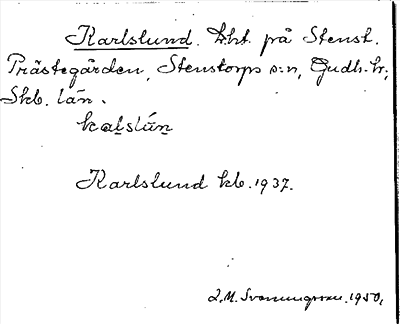 Karlslund. Lht. på Stenst.
Prästegården, Stenstorps s:n, Gudh. hr,
Skb. län.
kaḷslún
Karlslund kb. 1937.
L.M. Svanungsson. 1950.